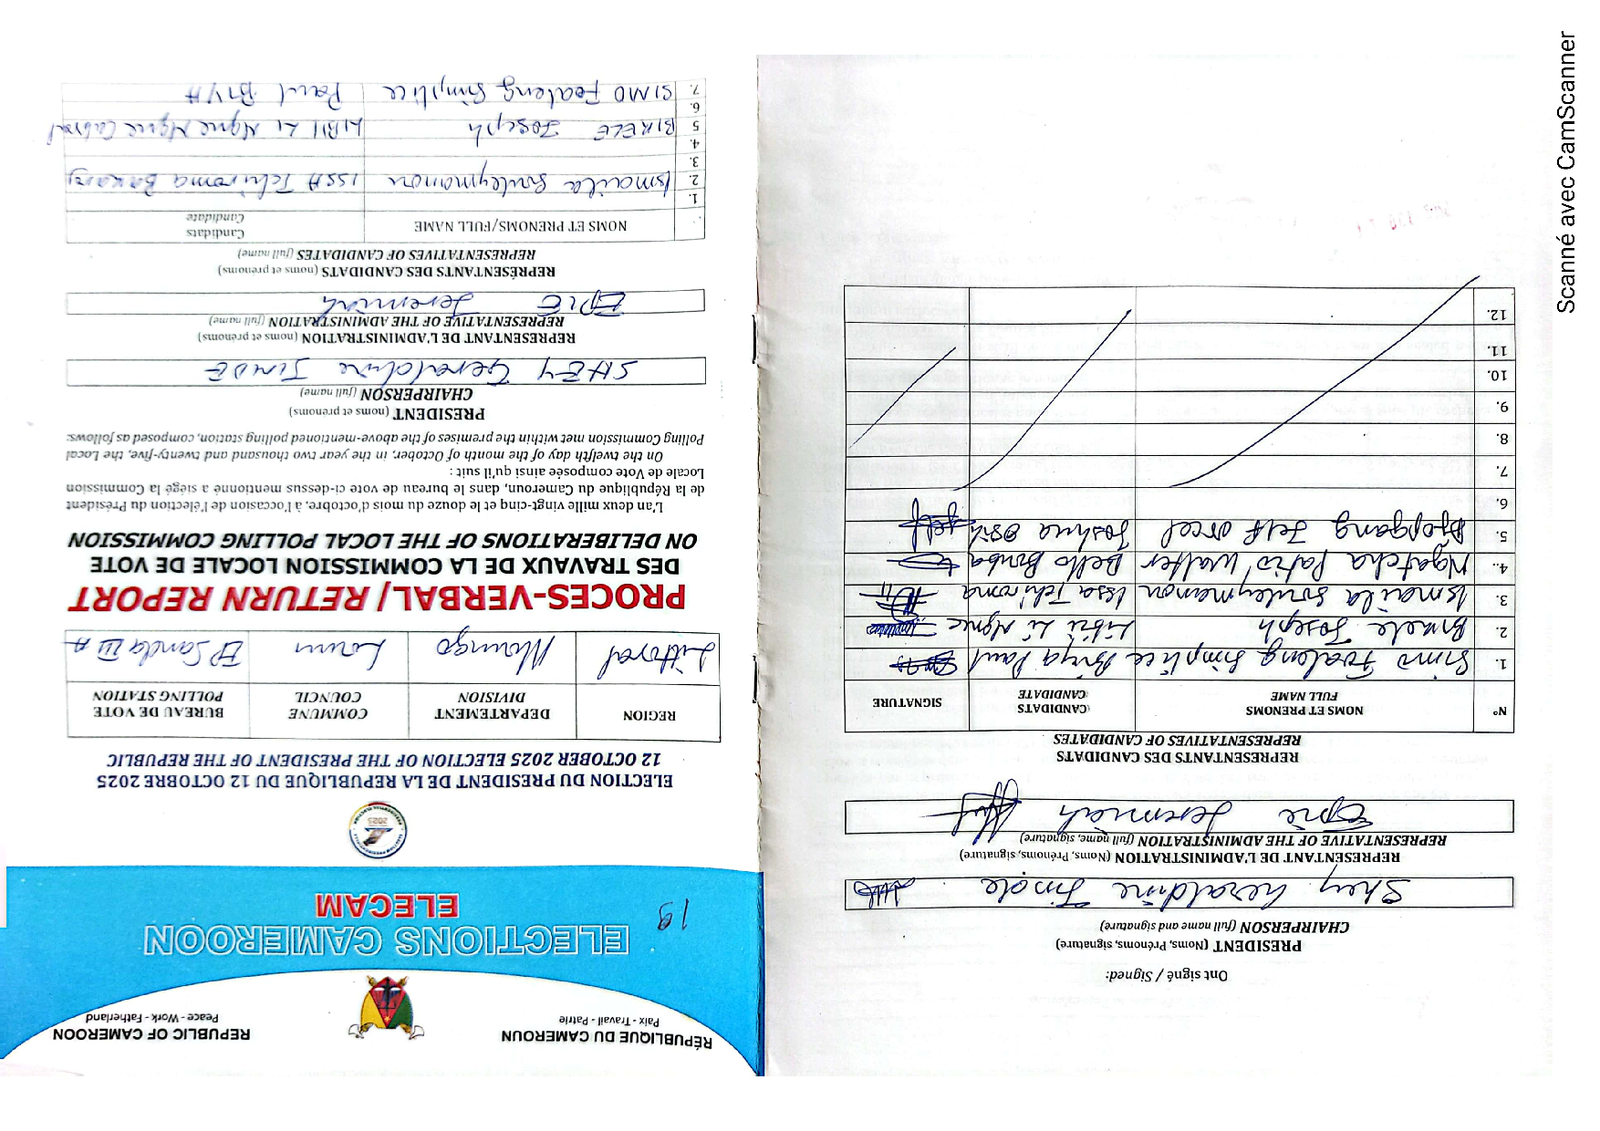 RÉPUBLIQUE DU CAMEROUN
Paix - Travail - Patrie
REPUBLIC OF CAMEROON
Peace - Work - Fatherland
ELECTIONS CAMEROON
ELECAM
19
ELECTION DU PRESIDENT DE LA REPUBLIQUE DU 12 OCTOBRE 2025
12 OCTOBER 2025 ELECTION OF THE PRESIDENT OF THE REPUBLIC
REGION
DEPARTEMENT
DIVISION
COMMUNE
COUNCIL
BUREAU DE VOTE
POLLING STATION
Littoral
Moungo
Loum
EP Sanda III A
PROCES-VERBAL/ RETURN REPORT
DES TRAVAUX DE LA COMMISSION LOCALE DE VOTE
ON DELIBERATIONS OF THE LOCAL POLLING COMMISSION
L'an deux mille vingt-cinq et le douze du mois d'octobre, à l'occasion de l'élection du Président
de la République du Cameroun, dans le bureau de vote ci-dessus mentionné a siégé la Commission
Locale de Vote composée ainsi qu'il suit :
On the twelfth day of the month of October, in the year two thousand and twenty-five, the Local
Polling Commission met within the premises of the above-mentioned polling station, composed as follows:
PRESIDENT (noms et prénoms)
CHAIRPERSON (full name)
SHEY Geraldine JINDE
REPRESENTANT DE L'ADMINISTRATION (noms et prénoms)
REPRESENTATIVE OF THE ADMINISTRATION (full name)
EPIE Jeremiah
REPRÉSENTANTS DES CANDIDATS (noms et prénoms)
REPRESENTATIVES OF CANDIDATES (full name)
NOMS ET PRENOMS/FULL NAME
Candidats
Candidate
1.
2. Ismaila Souleymanou ISSA Tchiroma Bakary
3.
4.
5 BIKELE Joseph LIBII Li Ngue Ngue Cabral
6.
7. SIMO Foaleng Simplice Paul BIYA
Ont signé / Signed:
PRESIDENT (Noms, Prénoms, signature)
CHAIRPERSON (full name and signature)
Shey Geraldine Jinde
REPRESENTANT DE L'ADMINISTRATION (Noms, Prénoms, signature)
REPRESENTATIVE OF THE ADMINISTRATION (full name, signature)
Epie Jeremiah
REPRESENTANTS DES CANDIDATS
REPRESENTATIVES OF CANDIDATES
N°
NOMS ET PRENOMS
FULL NAME
CANDIDATS
CANDIDATE
SIGNATURE
1. Simo Foaleng Simplice Biya Paul
2. Bikele Joseph Libii Li Ngue
3. Ismaila Souleymanou Issa Tchiroma
4. Ngatcha Patrid Walter Bello Bouba
5. Djepgang Jeff orcel Joshua Osih
6.
7.
8.
9.
10.
11.
12.
Scanné avec CamScanner